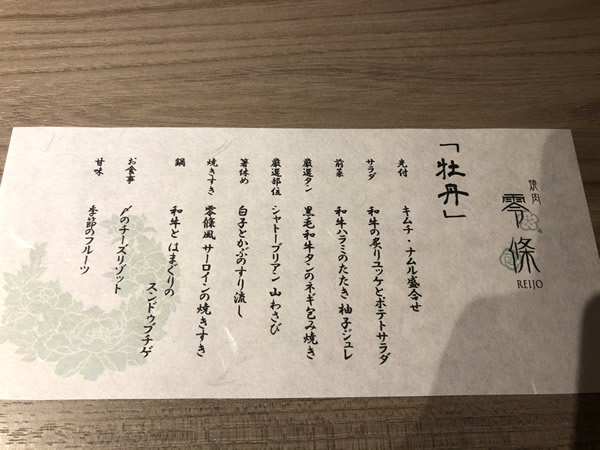 焼肉
零條
REIJO
「牡丹」
先付 キムチ・ナムル盛合せ
サラダ 和牛の炙りユッケとポテトサラダ
前菜 和牛ハラミのたたき 柚子ジュレ
厳選タン 黒毛和牛タンのネギ包み焼き
厳選部位 シャトーブリアン 山わさび
箸休め 白子とかぶのすり流し
焼きすき 零條風 サーロインの焼きすき
鍋 和牛とはまぐりの
スンドゥブチゲ
お食事 〆のチーズリゾット
甘味 季節のフルーツ